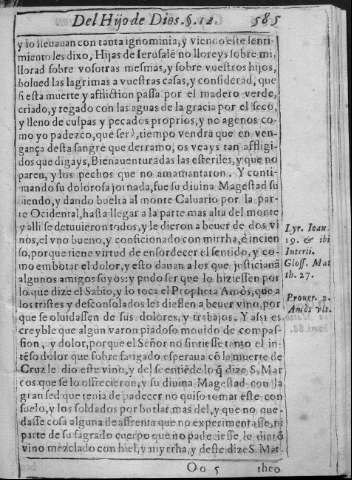 Del Hijo de Dios. §. 12. 585
y lo lleuauan con tanta ignominia, y viendo este senti-
miento les dixo, Hijas de Ierusalē no lloreys sobre mi,
llorad sobre vosotras mesmas, y sobre vuestros hijos,
bolued las lagrimas a vuestras casas, y considerad, que
si esta muerte y afliction passa por el madero verde,
criado, y regado con las aguas de la gracia por el seco,
y lleno de culpas y pecados proprios, y no agenos co-
mo yo padezco, que serà, tiempo vendrà que en ven-
gança desta sangre que derramo, os veays tan afligi-
dos que digays, Bienauenturadas las esteriles, y que no
paren, y los pechos que no amamantaron. Y conti-
nuando su dolorosa jornada, fue su diuina Magestad su
biendo, y dando buelta al monte Caluario por la par-
te Ocidental, hasta llegar a la parte mas alta del monte
y alli se detuuieron todos, y le dieron a beuer de dos vi
nos, el vno bueno, y conficionado con mirrha, è incien
so, porque tiene virtud de ensordecer el sentido, y co-
mo embotar el dolor, y esto dauan a los que justiciauā
algunos amigos suyos: y pudo ser que lo hiziessen por
lo que dize el Sabio, y lo toca el Propheta Amòs, que a
los tristes y desconsolados les diessen a beuer vino, por
que se oluidassen de sus dolores, y trabajos. Y assi es
creyble que algun varon piadoso mouido de compas-
sion, y dolor, porque el Señor no sintiesse tanto el in-
tēso dolor que sobre fatigado esperaua cō la muerte de
Cruz le dio este vino, y del se entiēde lo q̄ dize S. Mar
cos que se lo ofrecieron, y su diuina Magestad con la
gran sed que tenia de padecer no quiso tomar este con
suelo, y los soldados por burlar mas del, y que no que-
dasse cosa alguna de afrenta que no experimentasse, ni
parte de su sagrado cuerpo que no padeciesse, le dierō
vino mezclado con hiel, y myrrha, y deste dize S. Mat-
Oo 5 theo
Lyr. Ioan.
19. & ibi
Interli.
Gloss. Mat
th. 27.
Prouer.
Amòs